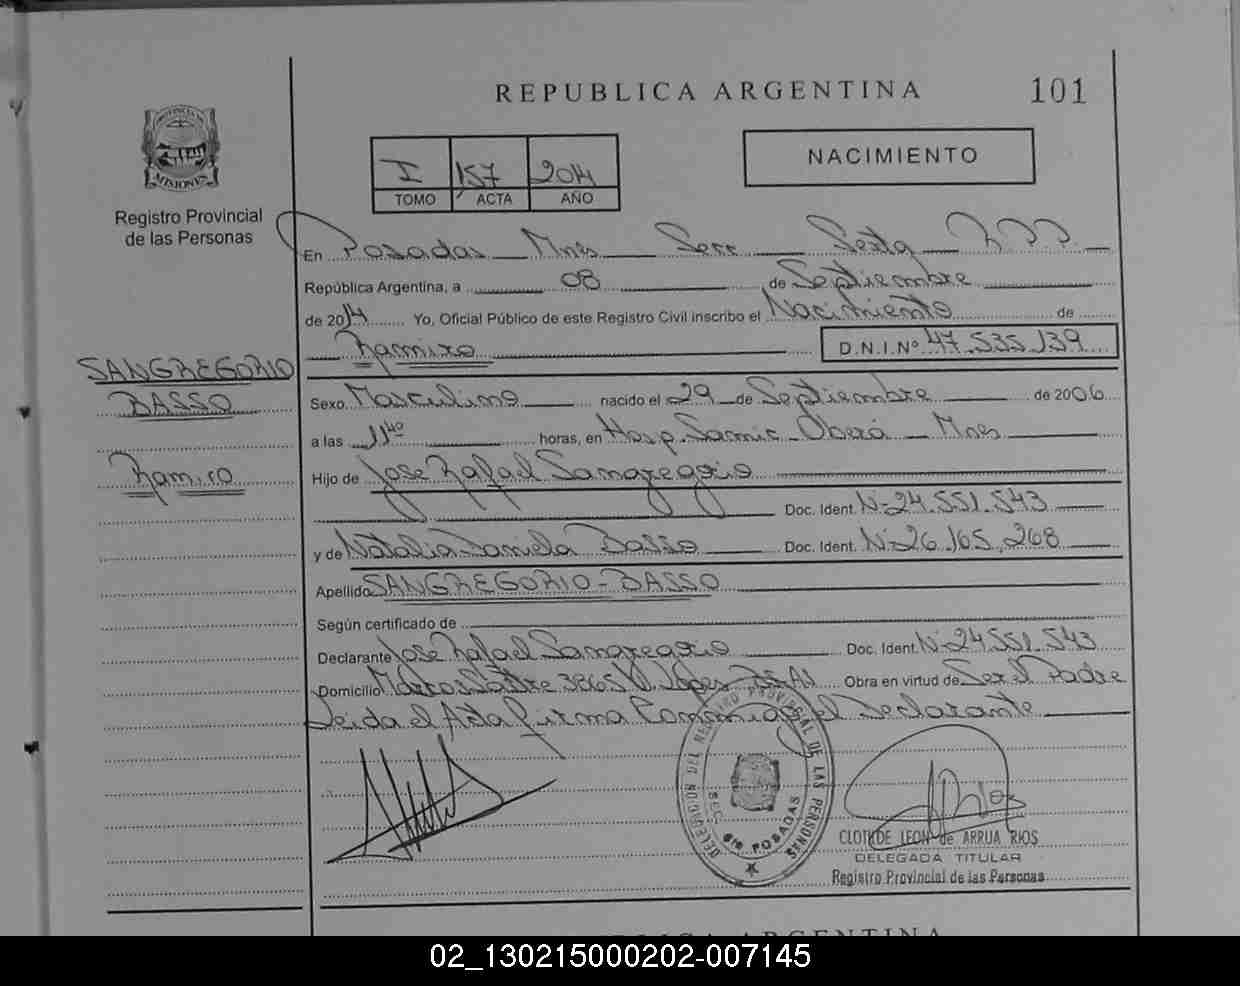 REPUBLICA ARGENTINA 101
PROVINCIA DE
MISIONES
Registro Provincial
de las Personas
I 157 2014
TOMO ACTA AÑO
NACIMIENTO
En Posadas Mnes Secc Sexta
República Argentina, a 08 de Septiembre
de 2014 Yo, Oficial Público de este Registro Civil inscribo el Nacimiento de
Ramiro D.N.I.Nº 47.535.139
SANGREGORIO
BASSO
Ramiro
Sexo Masculino nacido el 29 de Septiembre de 2006
a las 11 40 horas, en Hosp. Samic - Oberá - Mnes
Hijo de Jose Rafael Sangregorio
Doc. Ident. Nº 24.551.543
y de Natalia Daniela Basso Doc. Ident. Nº 26.165.268
Apellido SANGREGORIO - BASSO
Según certificado de
Declarante Jose Rafael Sangregorio Doc. Ident. Nº 24.551.543
Domicilio Marcos Sastre 3865 V. Lopez Bs As Obra en virtud de Ser el Padre
Leida el Acta firma Conmigo el Declarante
DELEGACION DEL REGISTRO PROVINCIAL DE LAS PERSONAS
POSADAS
CLOTILDE LEON de ARRUA RIOS
DELEGADA TITULAR
Registro Provincial de las Personas
ARGENTINA
02_130215000202-007145